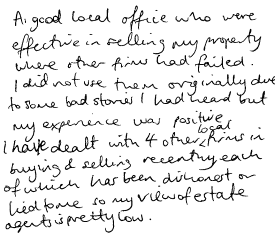 A good local office who were
effective in selling my property
where other firms had failed.
I did not use them originally due
to some bad stories I had heard but
my experience was positive
I have dealt with 4 other local firms in
buying & selling recently each
of which has been dishonest or
lied to me so my view of estate
agents is pretty low.